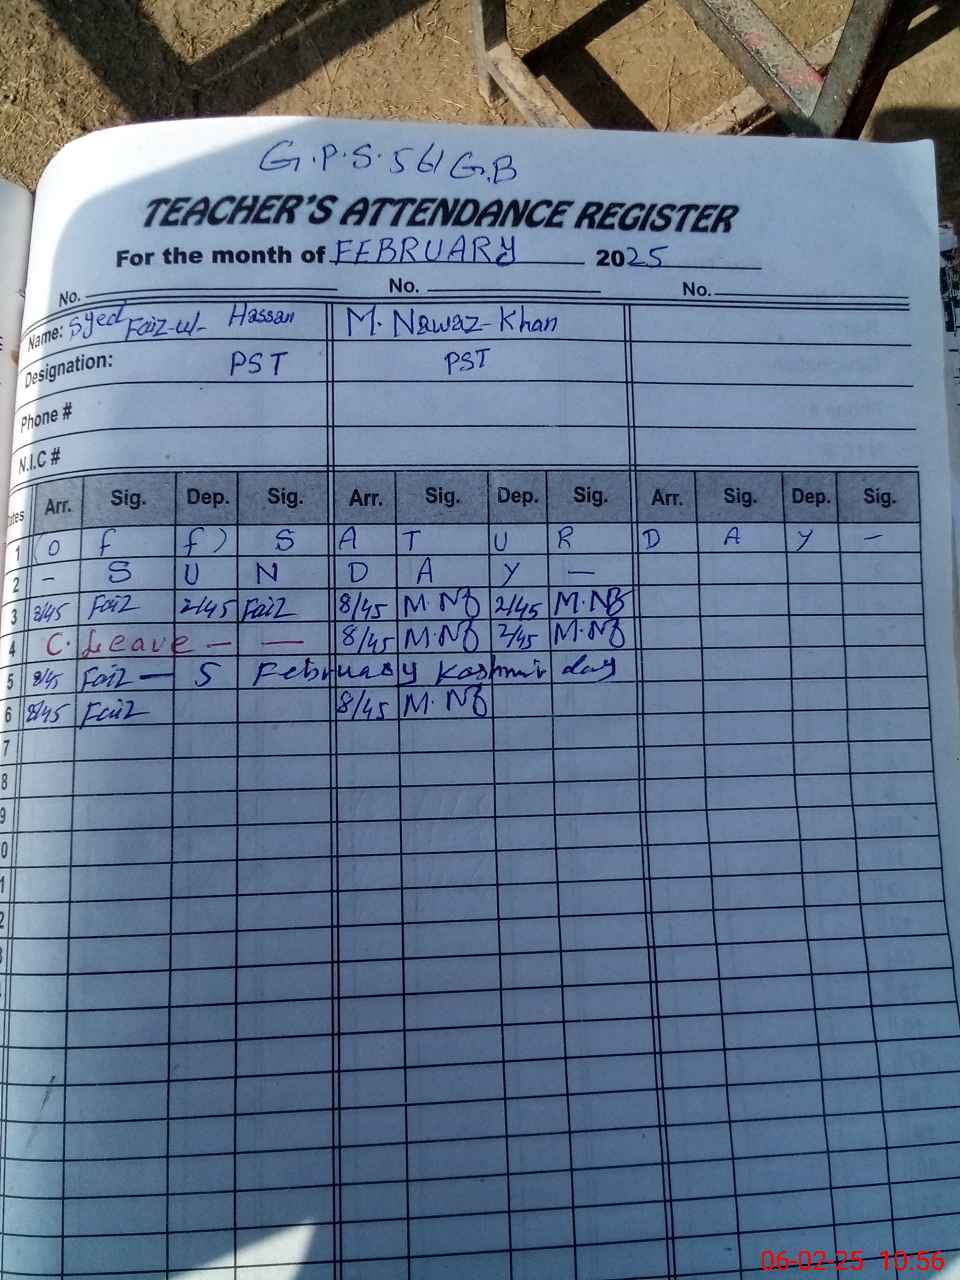 G.P.S. 561 G.B
TEACHER'S ATTENDANCE REGISTER
For the month of FEBRUARY 2025
No. No. No.
Name: Syed Faiz-ul- Hassan M. Nawaz-Khan
Designation: PST PST
Phone #
N.I.C #
Arr. Sig. Dep. Sig. Arr. Sig. Dep. Sig. Arr. Sig. Dep. Sig.
1 (O f f) S A T U R D A Y -
2 - S U N D A Y -
3 8/45 Faiz 2/45 Faiz 8/45 M.NB 2/45 M.NB
4 C. Leave - - 8/45 M.NB 2/45 M.NB
5 8/45 Faiz - 5 February Kashmir day
6 8/45 Faiz 8/45 M.NB
7
8
9
0
1
2
06-02-25 10:56